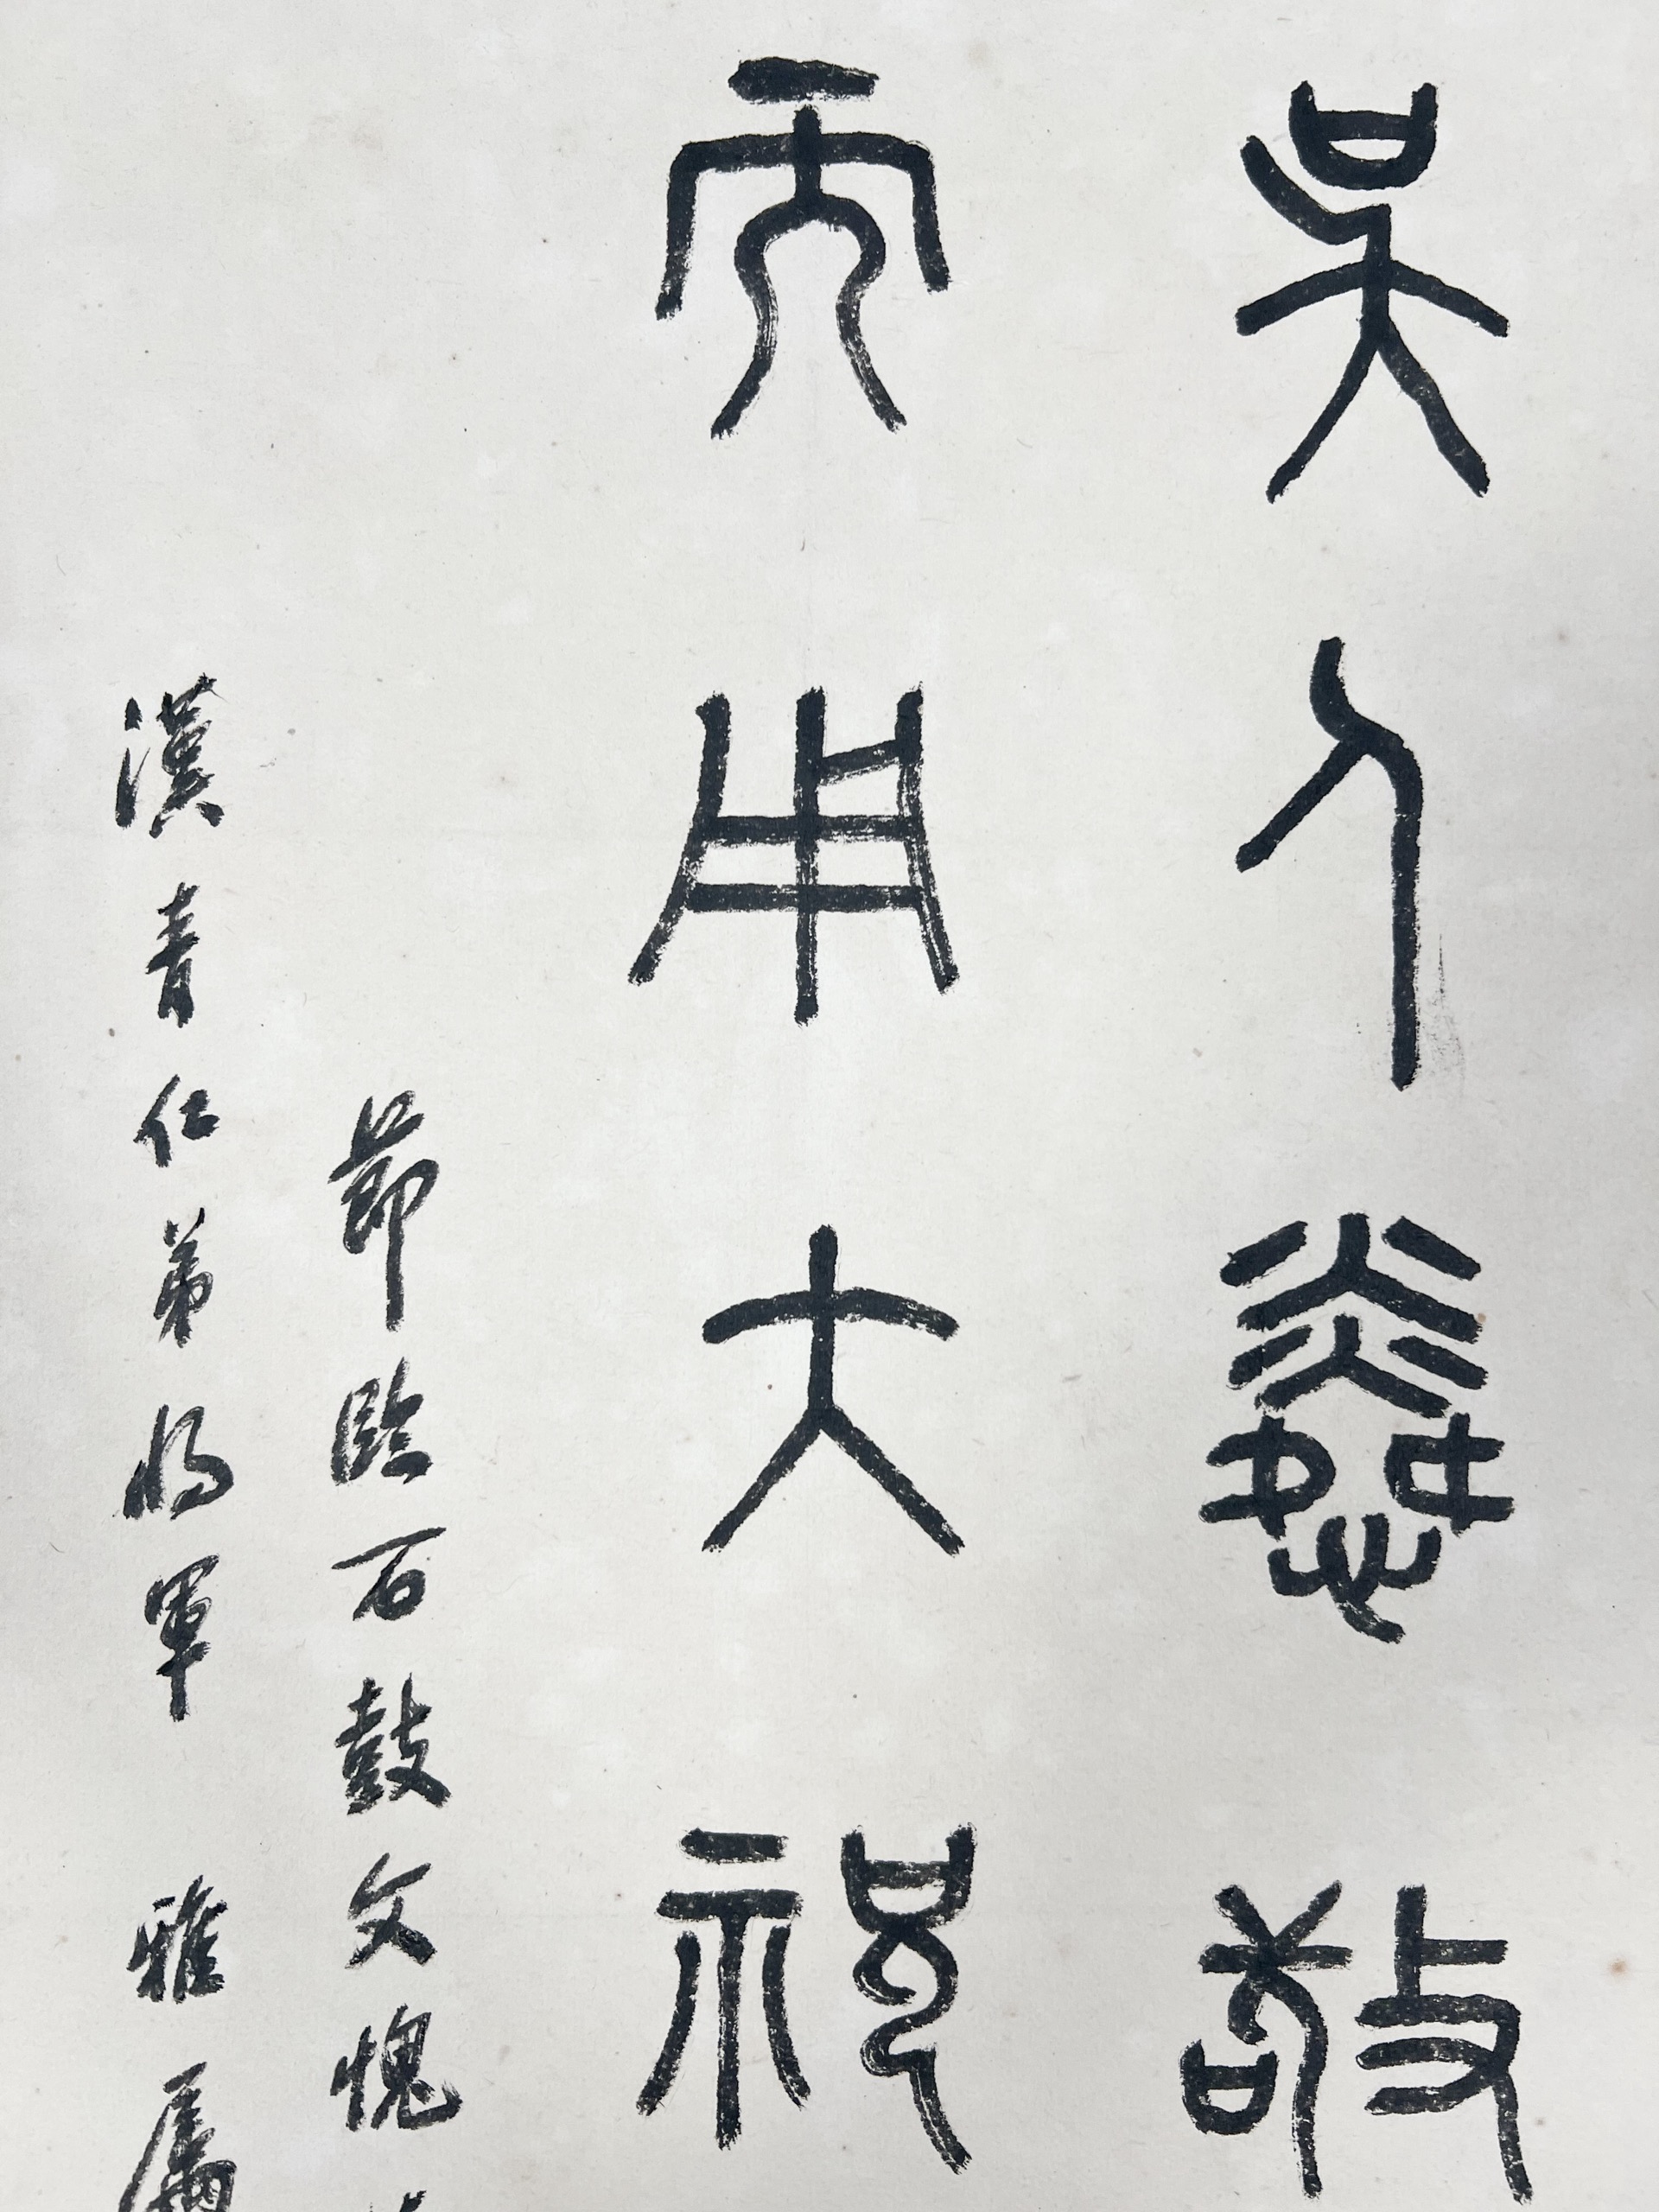 吳人憐敬
而用大祝
節臨石鼓文愧
漢青仁弟將軍 雅屬